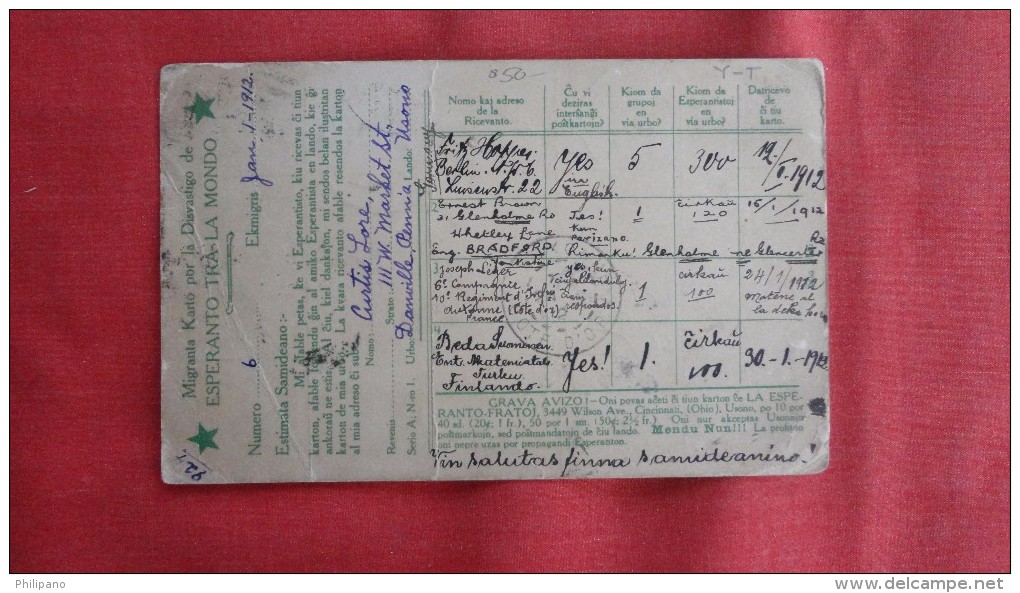 Migranta Karto por la Disvastigo de
ESPERANTO TRA LA MONDO
Numero 6 Ekmigris Jan. 1-1912.
Estimata Samideano:-
Mi afable petas, ke vi Esperantisto, kiu ricevas ĉi tiun
karton, afable
al amiko Esperantista en lando, kie ĝi
ankoraŭ ne estis. Al ĉiu, kiel dankaĵon, mi sendos belan ilustritan
karton de mia urbo. La kvara ricevanto afable resendos la karton
al mia adreso ĉi suba.
Nomo: Curtis Lore,
Strato: 111 W. Market St.,
Revenis
Serio A; N-ro 1. Urbo: Danville, Penn'a Lando: Usono
$50-
Y-T
Nomo kaj adreso
de la
Ricevanto.
Ĉu vi
deziras
interŝanĝi
poŝtkartojn?
Kiom da
grupoj
en
via urbo?
Kiom da
Esperantistoj
en
via urbo?
Datricevo
de
ĉi tiu
karto.
Fritz
Berlin
22
Yes
in
English.
5
300
12/I. 1912
2 Ernest Brown
21 Glenholme Rd
Whetley Lane
Eng. BRADFORD.
Jes!
kun
1
ĉirkaŭ
120
15/1/1912
Rimarku! Glenholme ne Glencester
Rd
3 Joseph Léger
6e Compagnie
10e Regiment d'Infrie
Auxonne (Côte d'or)
France
yes, kun
respondos.
1
cirkaŭ
100
24/1/1912
Matene al
la deka horo
4
Beda Suominen
Turku
Finlando.
Yes!
1.
ĉirkaŭ
100.
30.-1.-1912.
GRAVA AVIZO!-Oni povas aĉeti ĉi tiun karton ĉe LA ESPE-
RANTO-FRATOJ, 3449 Wilson Ave., Cincinnati, (Ohio), Usono, po 10 por
40 sd. (20¢; 1 fr.), 50 por 1 sm. (50¢; 2½ fr.) Oni nur akceptas Usonajn
poŝtmarkojn, sed poŝtmandatojn de ĉiu lando. Mendu Nun!!! La profiton
oni nepre uzas por propagandi Esperanton.
Vin salutas finna samideanino!
Philipano
www.delcampe.net